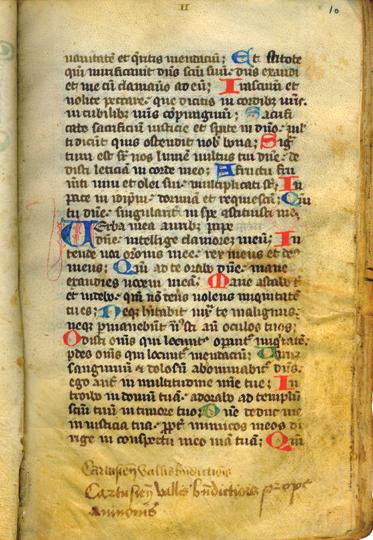 uanitatē et qritis mendaciū; Et scitote
qm̄ mirificauit dn̄s scm̄ suū· dn̄s exaudi
et me cū clamauō ad eū; Irascimī et
nolite peccare· que dicitis in cordib; ur̄is·
in cubilib; ur̄is cōpungimī; Sacrifi
cate sacrificiū iusticie et spate in dn̄o· ml
ti dicūt quis ostendit nob̄ bona; Sig
tum est sr̄ nos lumen uultus tui dn̄e· de
disti leticiā in corde meo; A fructu fru
m̄ti uini et olei sui· multiplicati st̄; In
pace in idip̄m· dormiā et requiescā; Qm̄
tu dn̄e· singularit̄ in spe ꝯstituisti me;
Uerba mea aurib; pcipe
dn̄e· intellige clamorē meū; In
tende uoci orōnis mee· rex meus et ds̄
meus; Qm̄ ad te orabo dn̄e· mane
exaudies uocem meā; Mane astabo t̄
et uidebo· qm̄ nō deus uolens iniquitatē
tu es; Neq; hītabit iux̄ te malignus·
neq; pmanebūt iīusti an̄ oculos tuos;
Odisti om̄s qui opant̄ iniqtatē·
pdes om̄s qui locunt̄ mendaciū; Uirū
sanguinū et dolosū abominabit̄ dn̄s·
ego aūt in multitudine mīe tue; In
troibo in domū tuā· adorabo ad templū
scm̄ tuū in timore tuo; Dn̄e deduc me
in iusticia tua· ppt̄ inimicos meos di
rige in conspectu meo uiā tuā; Qm̄
Cartusien̄ Vallis bn̄dictionis
Cartusien̄ Vallis bn̄dictionis prope
avinionem